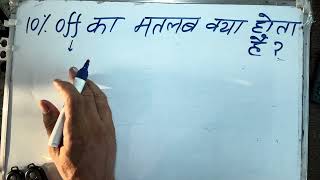 10% off का मतलब क्या होता
है ?